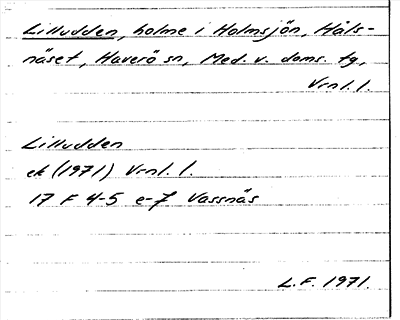 Lilludden, holme i Holmsjön, Håls-
näset, Haverö sn, Med. v. doms. tg,
Vrnl. l.
Lilludden
ek (1971) Vrnl. l.
17 F 4-5 e-f Vassnäs
L.F. 1971.